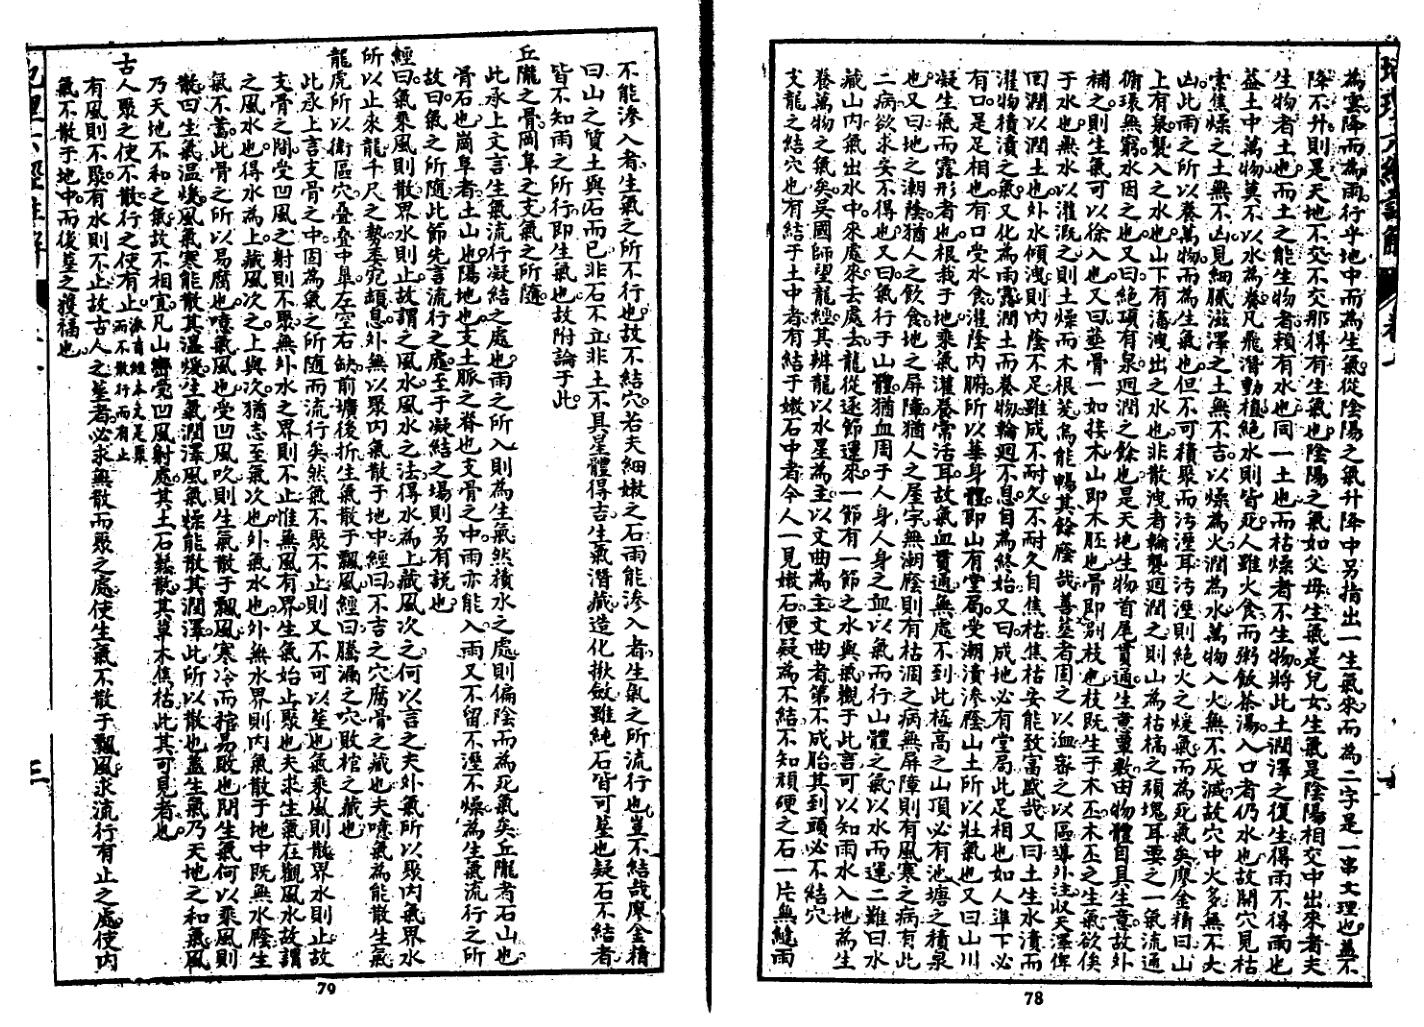 為雲降而為雨行乎地中而為生氣從陰陽之氣升降中另指出一生氣來而為二字是一串文理也蓋不
降不升則是天地不交不交那得有生氣也陰陽之氣如父母生氣是兒女生氣是陰陽相交中出來者夫
生物者土也而土之能生物者賴有水也同一土也而枯燥者不生物將此土潤澤之復生得雨不得雨也
益土中萬物莫不以水為養凡飛潛動植絕水則皆死人雖火食而粥飯茶湯入口者仍水也故開穴見枯
索焦燥之土無不凶見細膩滋澤之土無不吉以燥為火潤為水萬物入火無不灰滅故穴中火多無不大
凶此雨之所以養萬物而為生氣也但不可積聚而污溼耳污溼則絕火之煖氣而為死氣矣廖金精曰山
上有泉襲入之水也山下有瀉洩出之水也非散洩者輪襲迴潤之則山為枯槁之頑塊耳要之一氣流通
循環無窮水因之也又曰絕頂有泉迴潤之餘也是天地生物首尾貫通生意彙敷由物體自具生意故外
補之則生氣可以徐入也又曰塟骨一如接木山即木胚也骨即別枝也枝既生于木丕木丕之生氣欲俟
于水也無水以灌溉之則土燥而木根荄烏能暢其餘廕哉善塟者固之以血審之以區導外注收天澤俾
回潤以潤土也外水傾洩則內陰不足雖成不耐久不耐久自焦枯焦枯安能致富盛哉又曰土生水漬而
濯物積漬之氣又化為雨露潤土而養物輪迴不息自為終始又曰成地必有堂局此足相也如人準下必
有口是足相也有口受水食灌陰內腑所以華身體即山有堂局受潮漬滲廕山土所以壯氣也又曰山川
凝生氣而露形者也根栽于地乘氣灌養常活耳故氣血貫通無處不到此極高之山頂必有池塘之積泉
也又曰地之潮陰猶人之飲食地之屏障猶人之屋宇無潮廕則有枯涸之病無屏障則有風寒之病有此
二病欲求安不得也又曰氣行于山體猶血周于人身人身之血以氣而行山體之氣以水而運二難曰水
藏山內氣出水中來處來去處去龍從逐節運來一節有一節之水與氣觀于此言可以知雨水入地為生
養萬物之氣矣吳國師望龍經其辨龍以水星為主以文曲為主文曲者第不成胎其到頭必不結穴
支龍之結穴也有結于土中者有結于嫩石中者今人一見嫩石便疑為不結不知頑硬之石一片無縫雨
78
不能滲入者生氣之所不行也故不結穴若夫細嫩之石雨能滲入者生氣之所流行也豈不結哉廖金精
曰山之質土與石而已非石不立非土不具星體得吉生氣潛藏造化揪斂雖純石皆可塟也疑石不結者
皆不知雨之所行即生氣也故附論于此
丘隴之骨岡阜之支氣之所隨
此承上文言生氣流行凝結之處也雨之所入則為生氣然積水之處則偏陰而為死氣矣丘隴者石山也
骨石也崗阜者土山也陽地也支土脈之脊也支骨之中雨亦能入雨又不留不溼不燥為生氣流行之所
故曰氣之所隨此節先言流行之處至于凝結之場則另有說也
經曰氣乘風則散界水則止故謂之風水風水之法得水為上藏風次之何以言之夫外氣所以聚內氣界水
所以止來龍千尺之勢委宛頓息外無以聚內氣散于地中經曰不吉之穴腐骨之藏也夫噫氣為能散生氣
龍虎所以衛區穴叠叠中阜左空右缺前壙後折生氣散于飄風經曰騰漏之穴敗棺之藏也
此承上言支骨之中固為氣之所隨而流行矣然氣不聚不止則又不可以塟也氣乘風則散界水則止故
支骨之間受凹風之射則不聚無外水之界則不止惟無風有界生氣始止聚也夫求生氣在觀風水故謂
之風水也得水為上藏風次之上與次猶志至氣次也外氣水也外無水界則內氣散于地中既無水廕生
氣不蓄此骨之所以易腐也噫氣風也受凹風吹則生氣散于飄風寒冷而棺易敗也問生氣何以乘風則
散曰生氣溫煖風氣寒能散其溫煖生氣潤澤風氣燥能散其潤澤此所以散也蓋生氣乃天地之和氣風
乃天地不和之氣故不相宜凡山巒受凹風射處其土石鬆散其草木焦枯此其可見者也
古人聚之使不散行之使有止
有風則不聚有水則不止故古人之塟者必求無散而聚之處使生氣不散于飄風求流行有止之處使內
氣不散于地中而後塟之獲福也
79